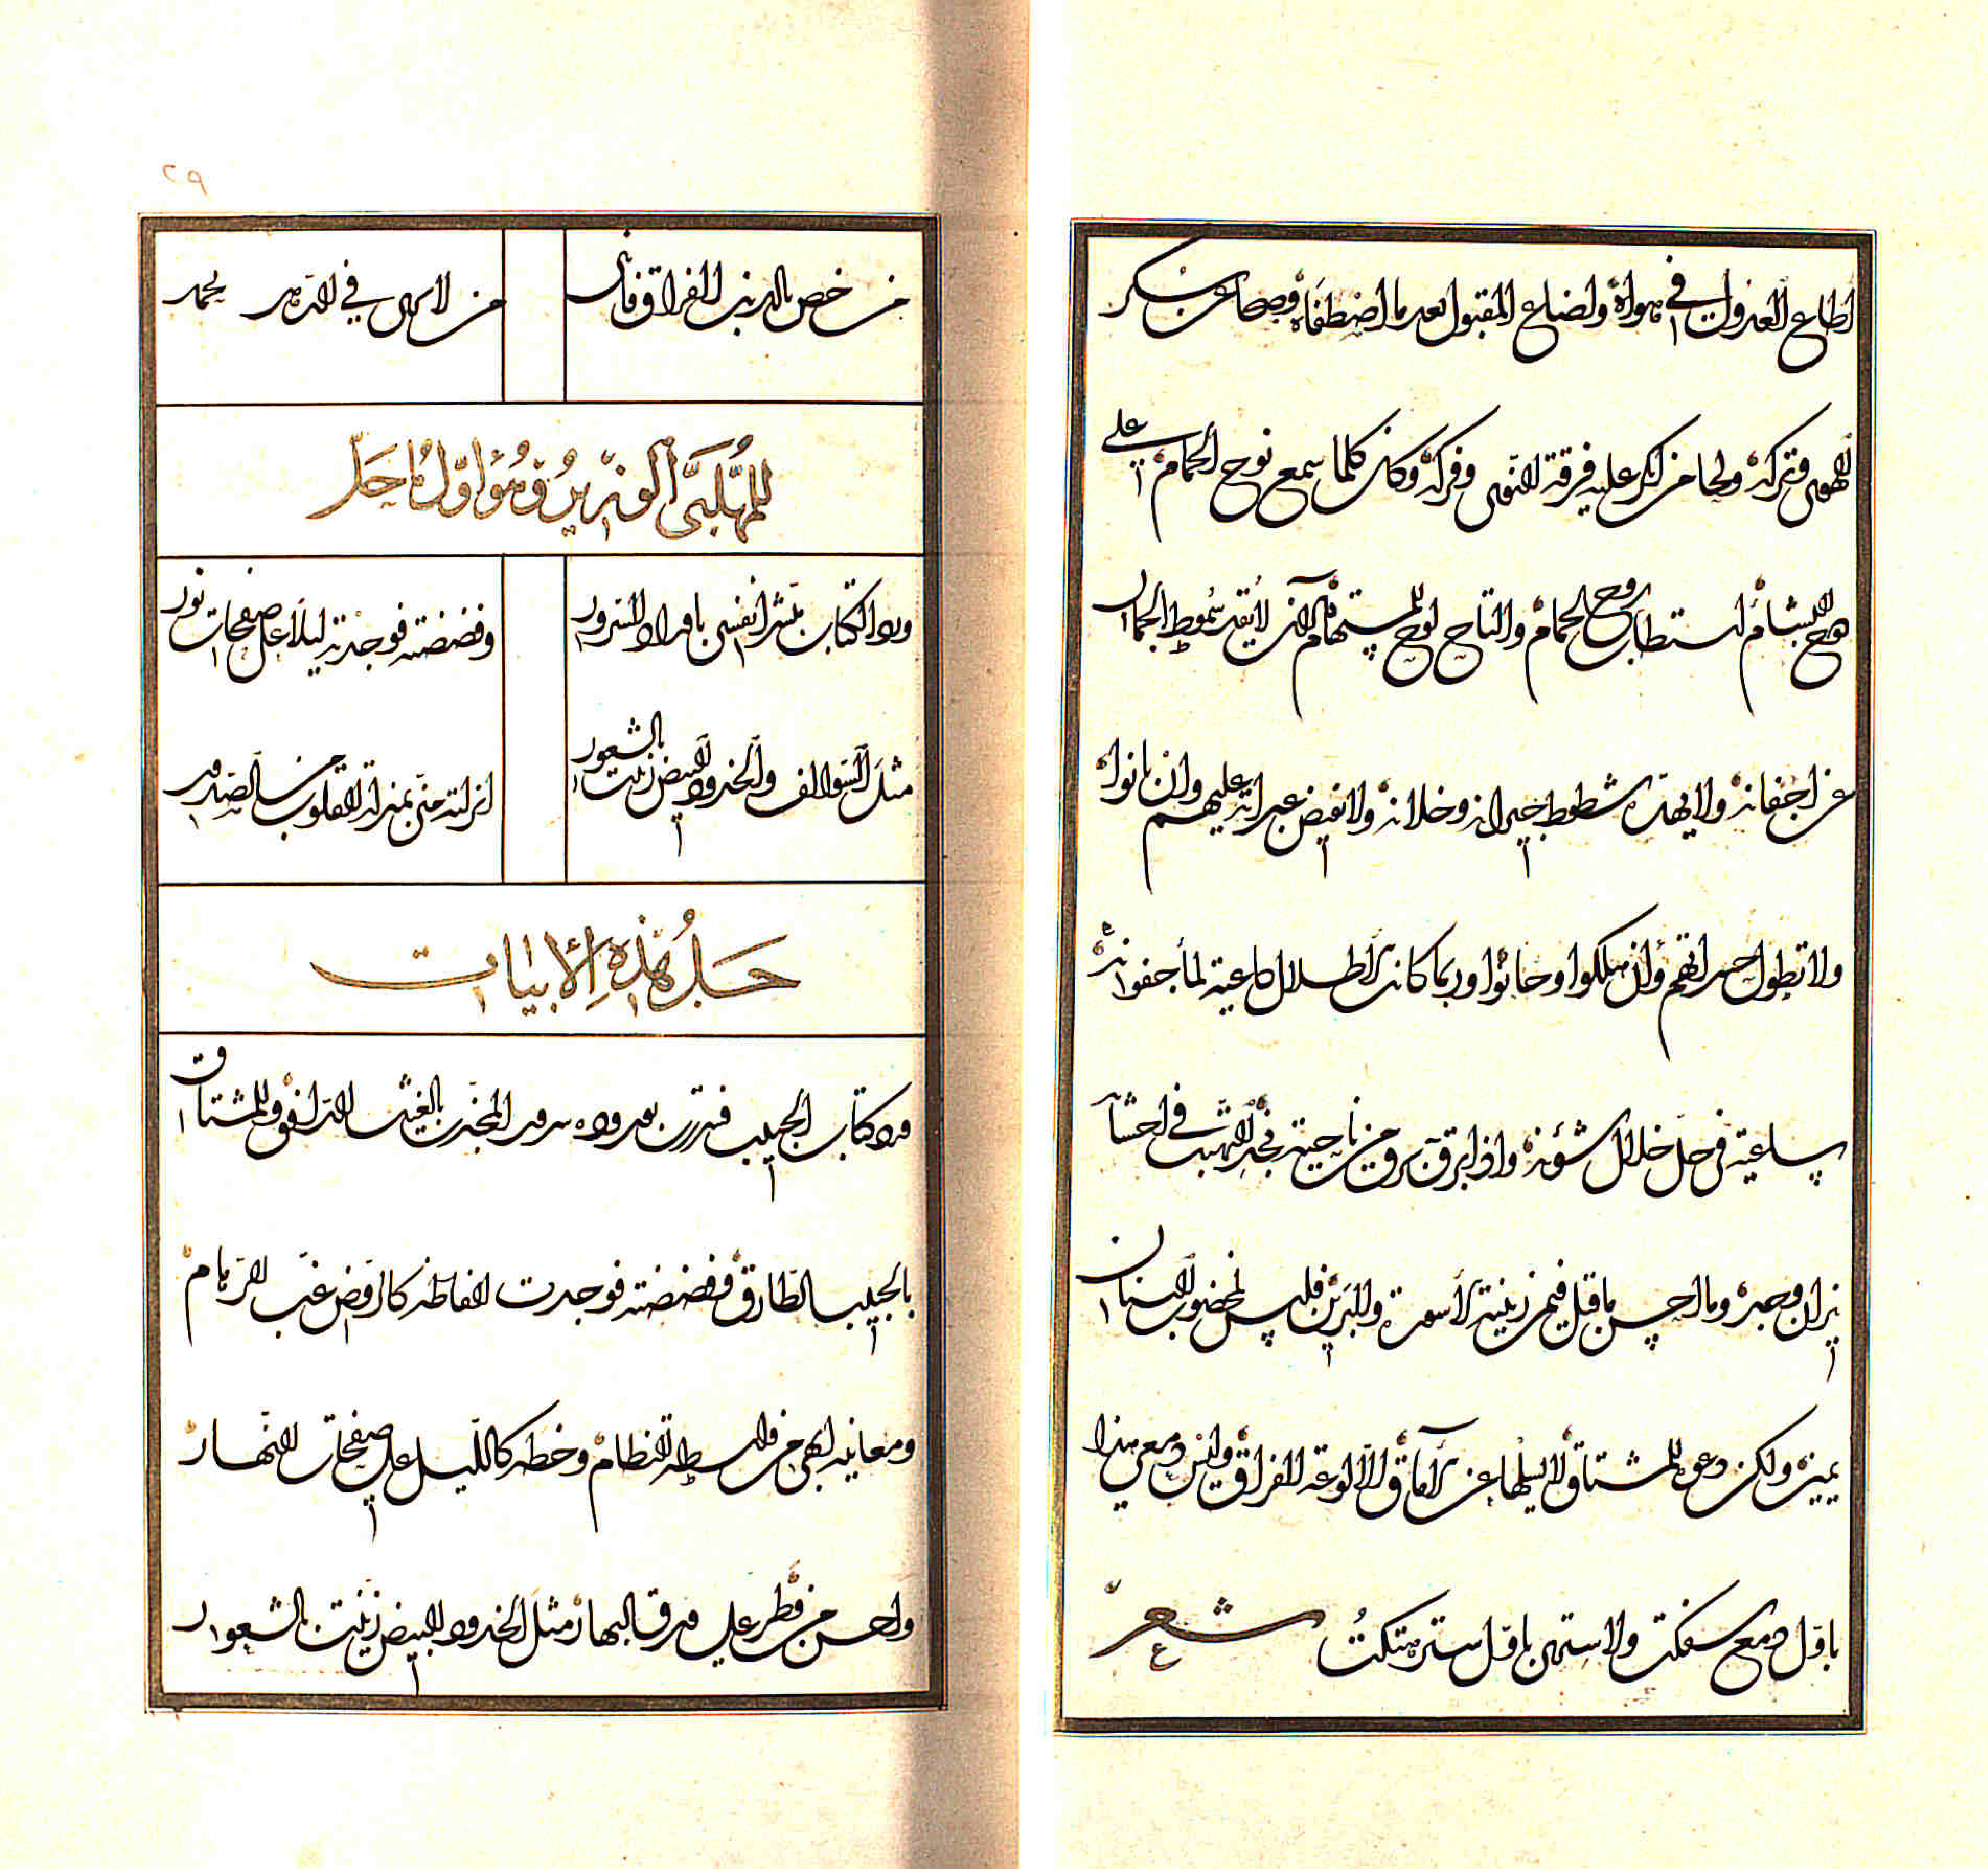 أطاع العذول في هواه وأضاع المقبول بعد ما اصطفاه وصحا عن سكر
الهوى وتركه ولحا من أنكر عليه فرقة النوى وفركه وكان كلما سمع نوح الحمام على
البشام استطاب نوح الحمام والتاح لوح المستهام الذي لا يقد سموط الجمان
عن أجفانه ولا يهدّه شطوط جيرانه وخلانه ولا تفيض عبراته عليهم وإن بانوا
ولا تطول حسراتهم وإن هلكوا وحانوا وربما كانت الأطلال داعية لماء جفونه
ساعية في حل خلال شؤونه وإذا برق برق من ناحية نجد التهبت في أحشائه
نيران وجده وما أحسن ما قيل فيمن زينته الأسورة والبرين فليس لمخضوب البنان
يمين ولكن دعوة المشتاق لا يسلها عن الآماق إلا لوعة الفراق وليس دمعي هذا
بأول دمع سفكت ولا ستري بأول ستر هتكت شعر
٢٩
من خص بالذم الفراق فإنني
من لا يرى في الدهر يحمد
للمهلبي الوزير وهو أول ما حل
ورد الكتاب مبشرا نفسي بأوراد السرور
وفضضته فوجدته ليلا على صفحات نور
مثل السوالف والخدود البيض زينت بالشعور
أنزلته مني بمنزلة القلوب من الصدور
حل هذه الأبيات
ورد كتاب الحبيب فسررت بوروده سرور المجدب بالغيث الدافق والمشتاق
بالحبيب الطارق وفضضته فوجدت ألفاظه كالروض غب الرهام
ومعانيه أبهى من واسطة النظام وخطه كالليل على صفحات النهار
وأحسن من قطر على ورق البهار مثل الخدود البيض زينت بالشعور